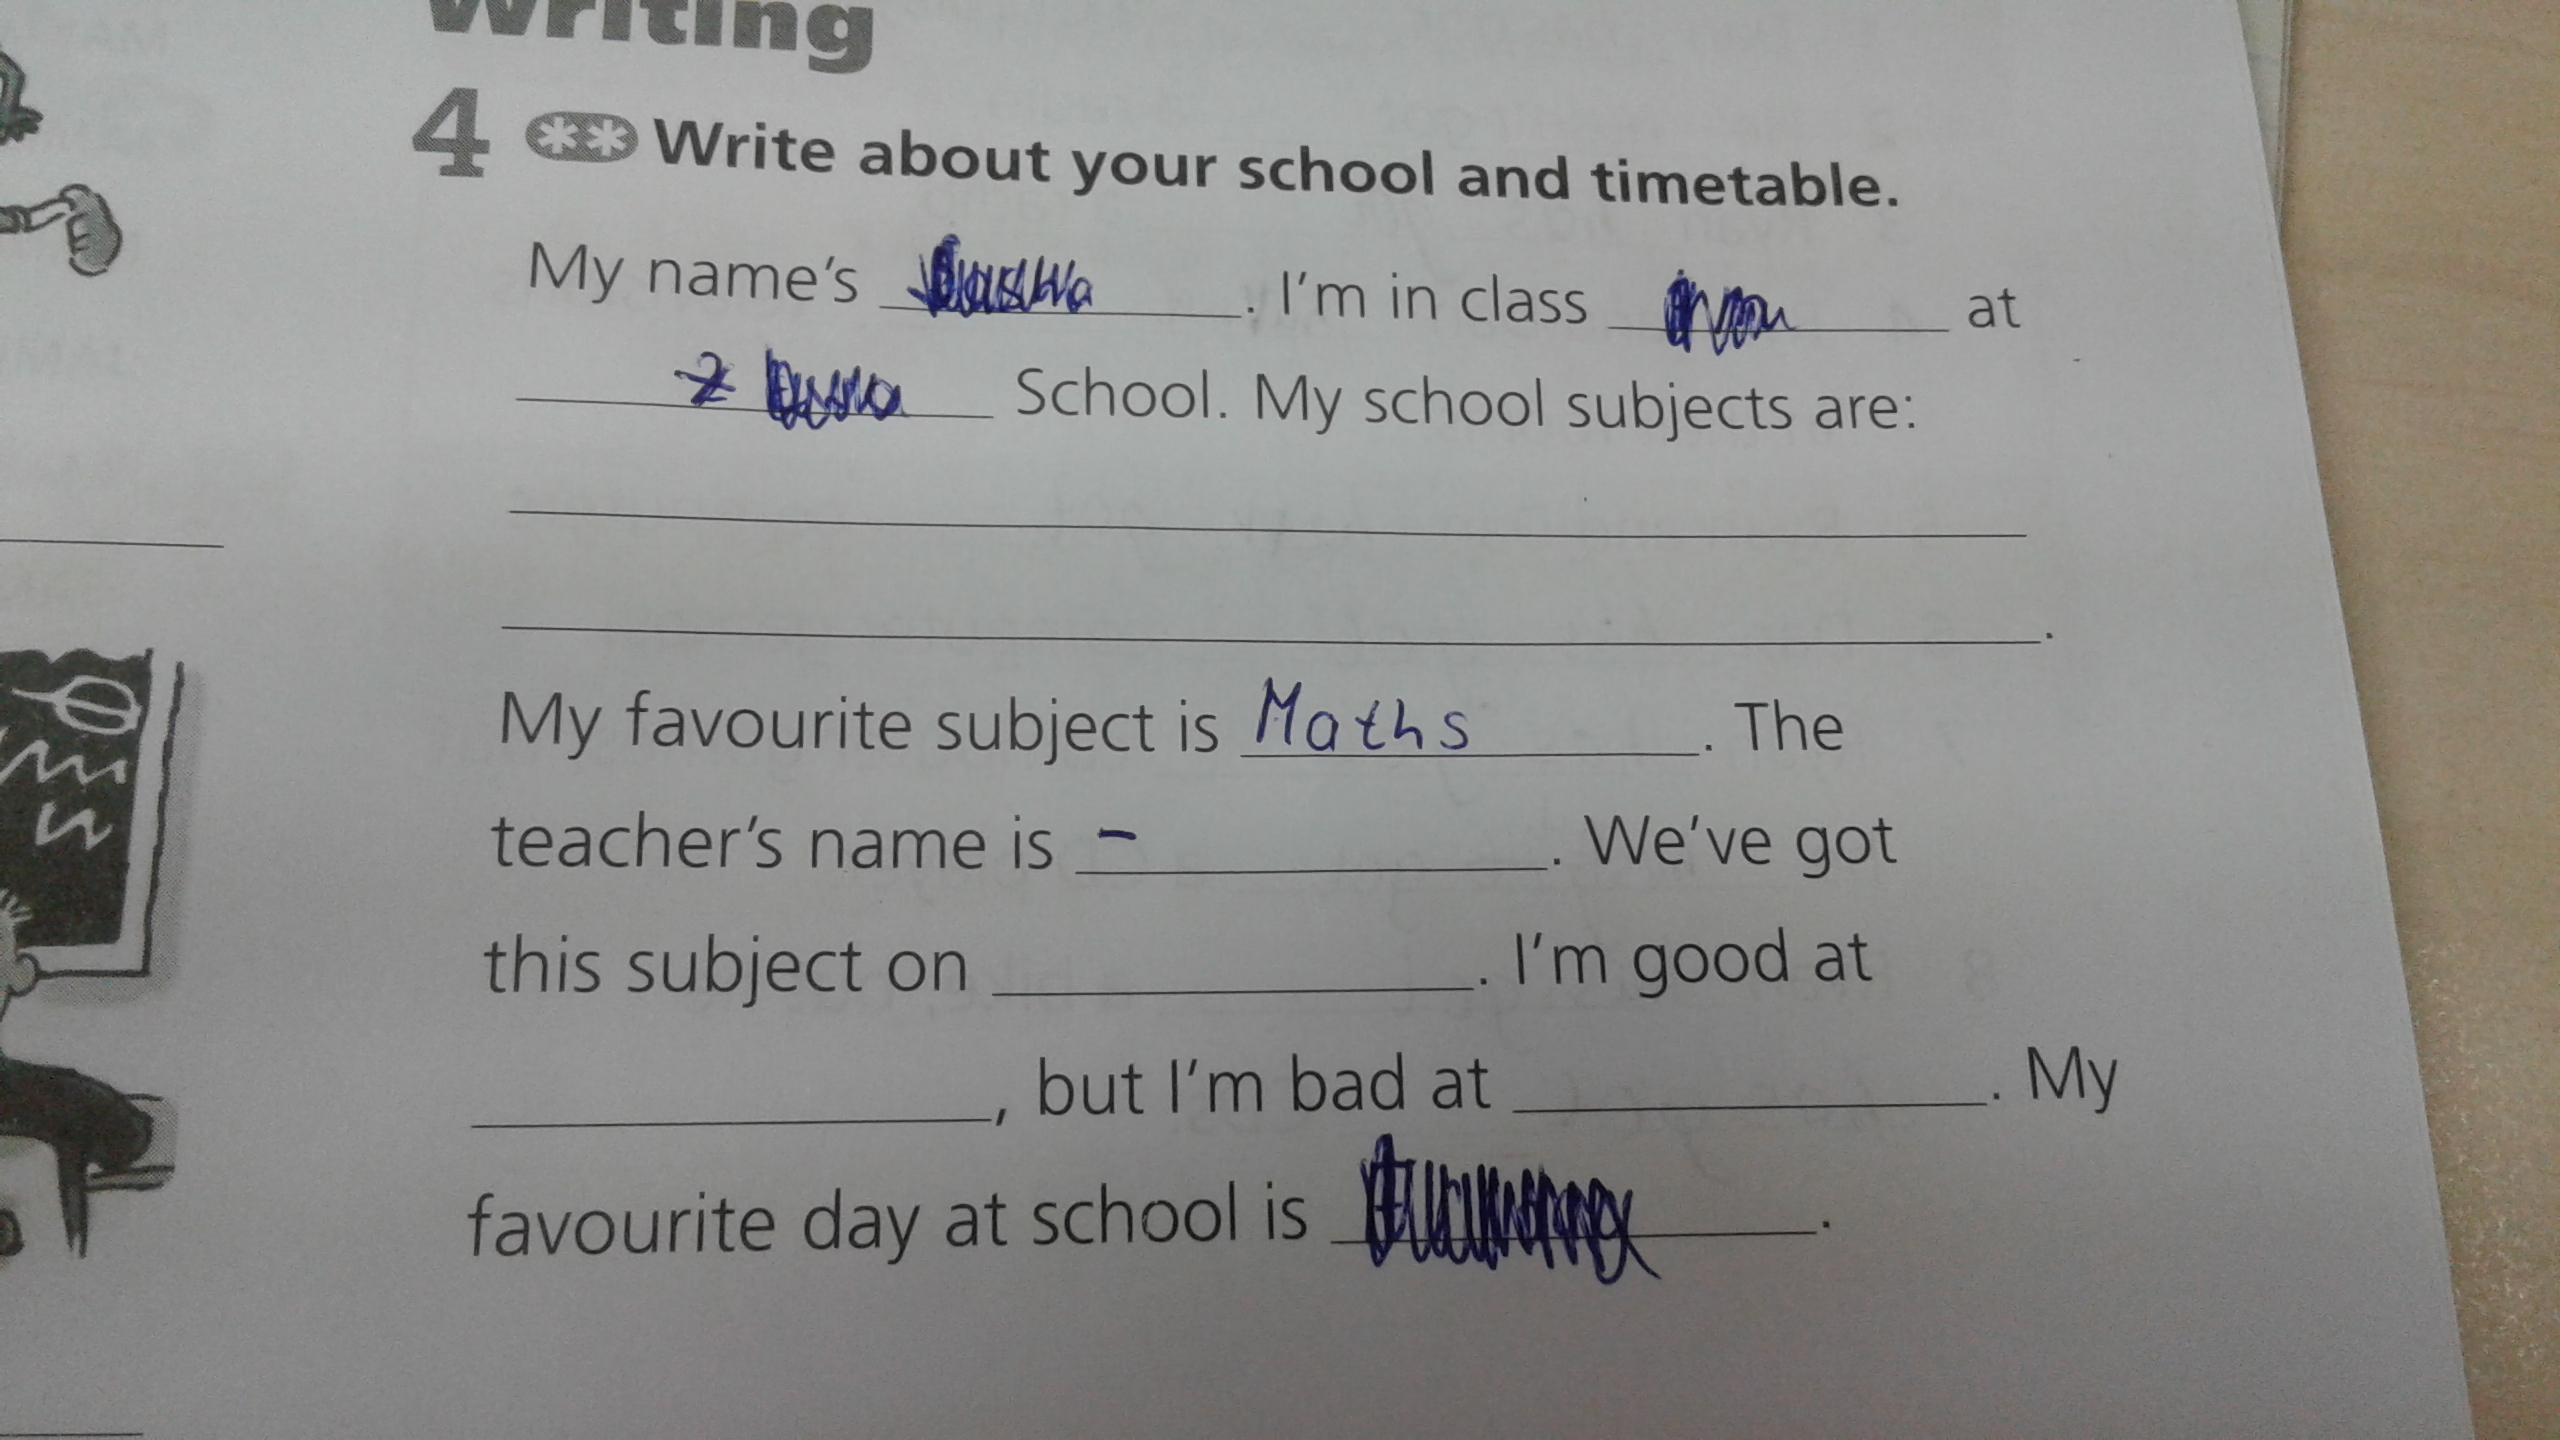 Writing
4 ** Write about your school and timetable.
My name's ____. I'm in class ____ at
____ School. My school subjects are:
____
____.
My favourite subject is Maths. The
teacher's name is –. We've got
this subject on ____. I'm good at
____, but I'm bad at ____. My
favourite day at school is ____.